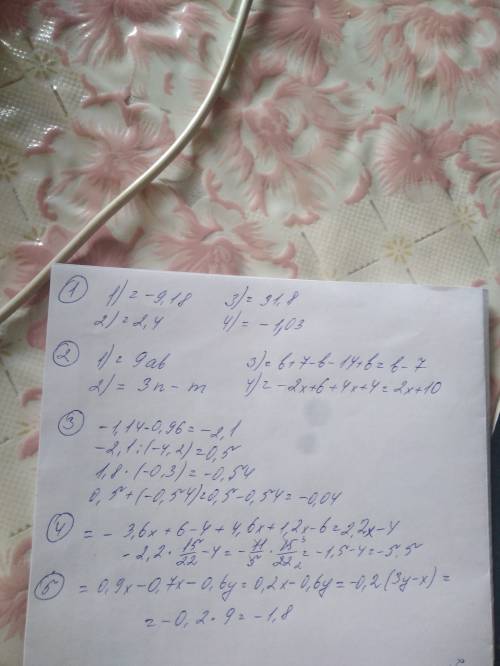 ① 1) = -9,18 3) = 31,8
2) = 2,4 4) = -1,03
② 1) = 9ab 3) = b+7-b-14+b = b-7
2) = 3n-m 4) = -2x+6+4x+4 = 2x+10
③ -1,14-0,96 = -2,1
-2,1:(-4,2) = 0,5
1,8·(-0,3) = -0,54
0,5+(-0,54) = 0,5-0,54 = -0,04
④ = -3,6x+6-4+4,6x+1,2x-6 = 2,2x-4
-2,2·15/22-4 = -11/5·15³/22₂ = -1,5-4 = -5,5
⑤ = 0,9x-0,7x-0,6y = 0,2x-0,6y = -0,2(3y-x) =
= -0,2·9 = -1,8